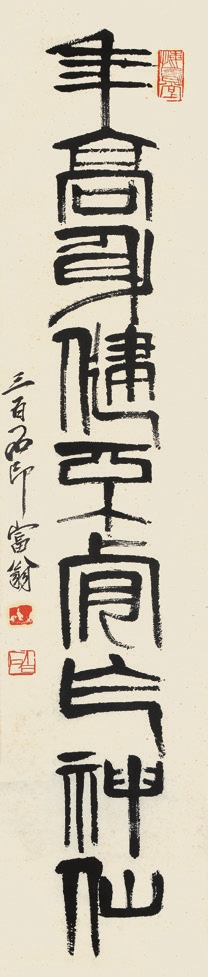 年高身健不肯作神仙
三百石印富翁